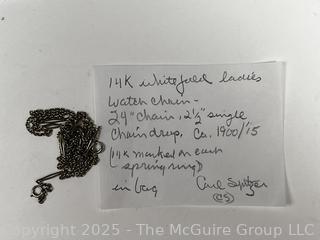 14K white gold ladies
watch chain -
24" chain, 2½" single
chain drop, Ca. 1900/15
(14K marked on each
spring ring)
in bag Carl Spitzer
(CS)
Copyright 2025 - The McGuire Group LLC